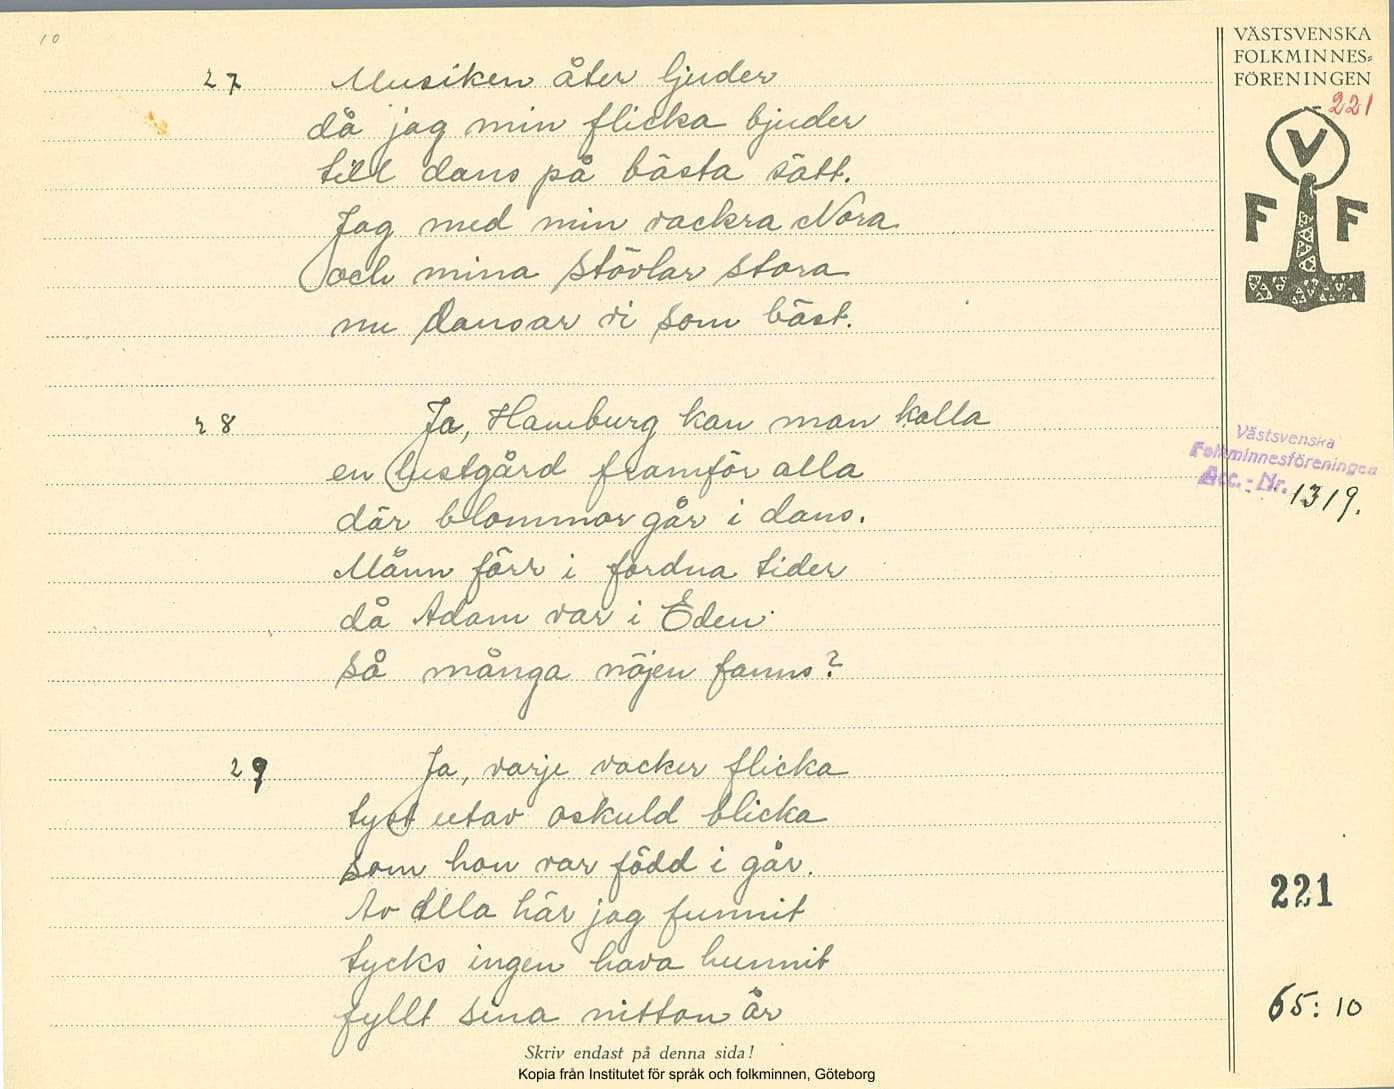 10
VÄSTSVENSKA
FOLKMINNES=
FÖRENINGEN
221
V
F F
27 Musiken åter ljuder
då jag min flicka bjuder
till dans på bästa sätt.
Jag med min vackra Nora
och mina stövlar stora
nu dansar vi som bäst.
28 Ja, Hamburg kan man kalla
en lustgård framför alla
där blommor går i dans.
Månn förr i fordna tider
då Adam var i Eden
så många nöjen fanns?
Västsvenska
Folkminnesföreningen
Acc.-Nr. 1319.
29 Ja, varje vacker flicka
tyst utav oskuld blicka
som hon var född i går.
Av alla här jag funnit
tycks ingen hava hunnit
fyllt sina nitton år
221
65:10
Skriv endast på denna sida!
Kopia från Institutet för språk och folkminnen, Göteborg